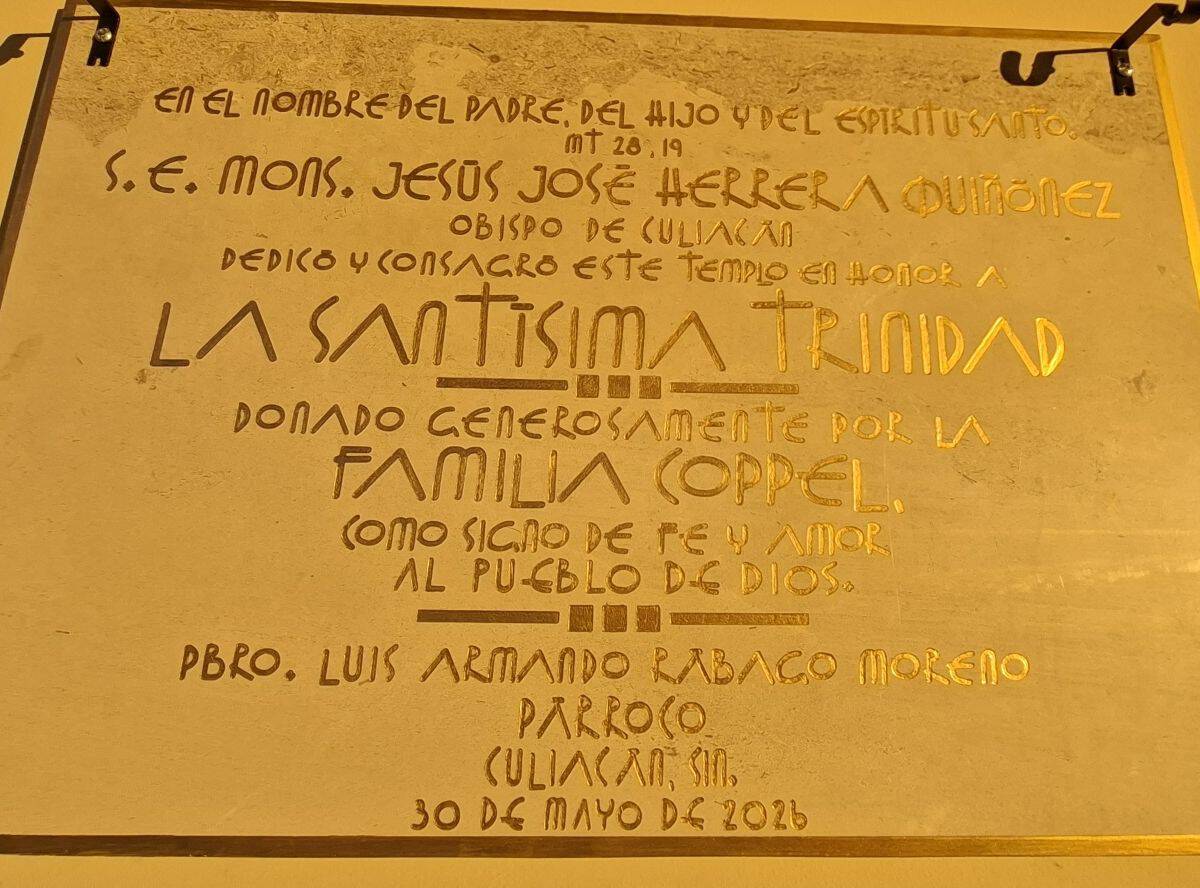 EN EL NOMBRE DEL PADRE, DEL HIJO Y DEL ESPIRITU SANTO.
MT 28,19
S. E. MONS. JESÚS JOSÉ HERRERA QUIÑÓNEZ
OBISPO DE CULIACÁN
DEDICÓ Y CONSAGRÓ ESTE TEMPLO EN HONOR A
LA SANTÍSIMA TRINIDAD
DONADO GENEROSAMENTE POR LA
FAMILIA COPPEL,
COMO SIGNO DE FE Y AMOR
AL PUEBLO DE DIOS.
PBRO. LUIS ARMANDO RÁBAGO MORENO
PÁRROCO
CULIACÁN, SIN.
30 DE MAYO DE 2026